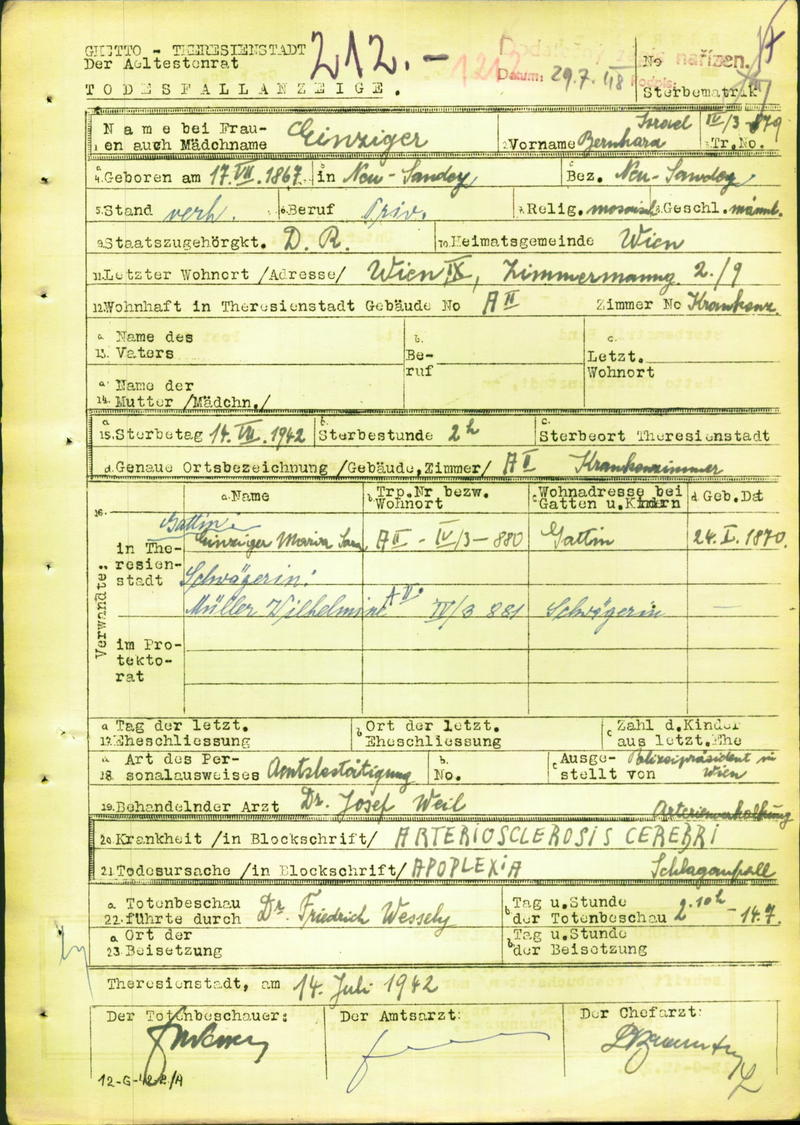 GHETTO - THERESIENSTADT
Der Aeltestenrat
TODESFALLANZEIGE.
212.-
1212
nařízen.
Datum: 29.7.48
No
Sterbematrik
Name bei Frau-
1. en auch Mädchname Einziger
2. Vorname Israel Bernhard
IV/3-879
3. Tr.No.
a 4. Geboren am 17.VII.1867. b in Neu-Sandez c Bez. Neu-Sandez
5. Stand verh. 6. Beruf Priv. 7. Relig. mosaisch 8. Geschl. männl.
9. Staatszugehörgkt. D. R. 10. Heimatsgemeinde Wien
11. Letzter Wohnort /Adresse/ Wien IX, Zimmermanng. 2./9
12. Wohnhaft in Theresienstadt Gebäude No A II Zimmer No Krankenz.
a 13. Name des Vaters b. Beruf c. Letzt. Wohnort
a 14. Name der Mutter /Mädchn./
a 15. Sterbetag 14.VII.1942 b. Sterbestunde 2h c. Sterbeort Theresienstadt
d. Genaue Ortsbezeichnung /Gebäude, Zimmer/ A II Krankenzimmer
16. Verwandte: a. Name b. Trp.Nr bezw. Wohnort c. Wohnadresse bei Gatten u.Kindern d Geb.Dat
in Theresienstadt
Gattin:
Einziger Maria Sara A II - IV/3-880 Gattin 24.I.1870.
Schwägerin:
Müller Wilhelmine A II. IV/3 881 Schwägerin —
im Protektorat
a 17. Tag der letzt. Eheschliessung b Ort der letzt. Eheschliessung c Zahl d.Kinder aus letzt.Ehe
a 18. Art des Personalausweises Amtsbestätigung b. No. c Ausgestellt von Polizeipräsident in Wien
19. Behandelnder Arzt Dr. Josef Weil
Arterienverkalkung
20. Krankheit /in Blockschrift/ ARTERIOSCLEROSIS CEREBRI
21. Todesursache /in Blockschrift/ APOPLEXIA Schlaganfall
a 22. Totenbeschau führte durch Dr. Friedrich Wessely b Tag u.Stunde der Totenbeschau 2.10h - 14.7.
a 23. Ort der Beisetzung b Tag u.Stunde der Beisetzung
Theresienstadt, am 14. Juli 1942
Der Totenbeschauer: Der Amtsarzt: Der Chefarzt: